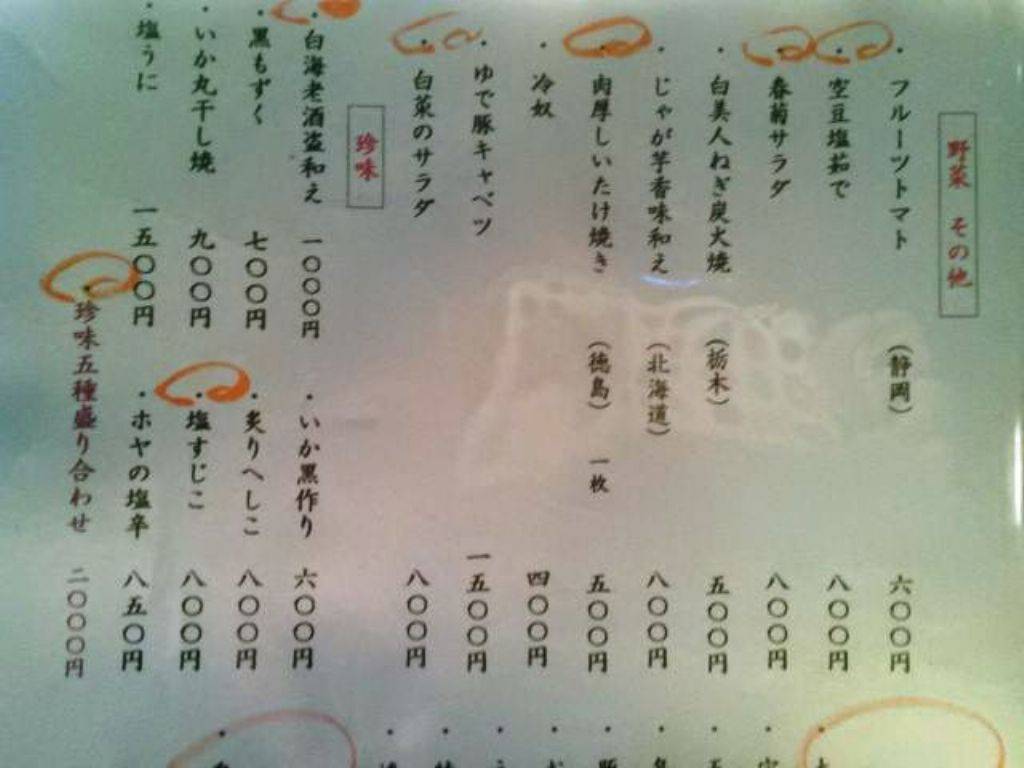 野菜 その他
・フルーツトマト (静岡) 六〇〇円
・空豆塩茹で 八〇〇円
・春菊サラダ 八〇〇円
・白美人ねぎ炭火焼 (栃木) 五〇〇円
・じゃが芋香味和え (北海道) 八〇〇円
・肉厚しいたけ焼き (徳島) 一枚 五〇〇円
・冷奴 四〇〇円
・ゆで豚キャベツ 一五〇〇円
・白菜のサラダ 八〇〇円
珍味
・白海老酒盗和え 一〇〇〇円
・黒もずく 七〇〇円
・いか丸干し焼 九〇〇円
・塩うに 一五〇〇円
・いか黒作り 六〇〇円
・炙りへしこ 八〇〇円
・塩すじこ 八〇〇円
・ホヤの塩辛 八五〇円
・珍味五種盛り合わせ 二〇〇〇円